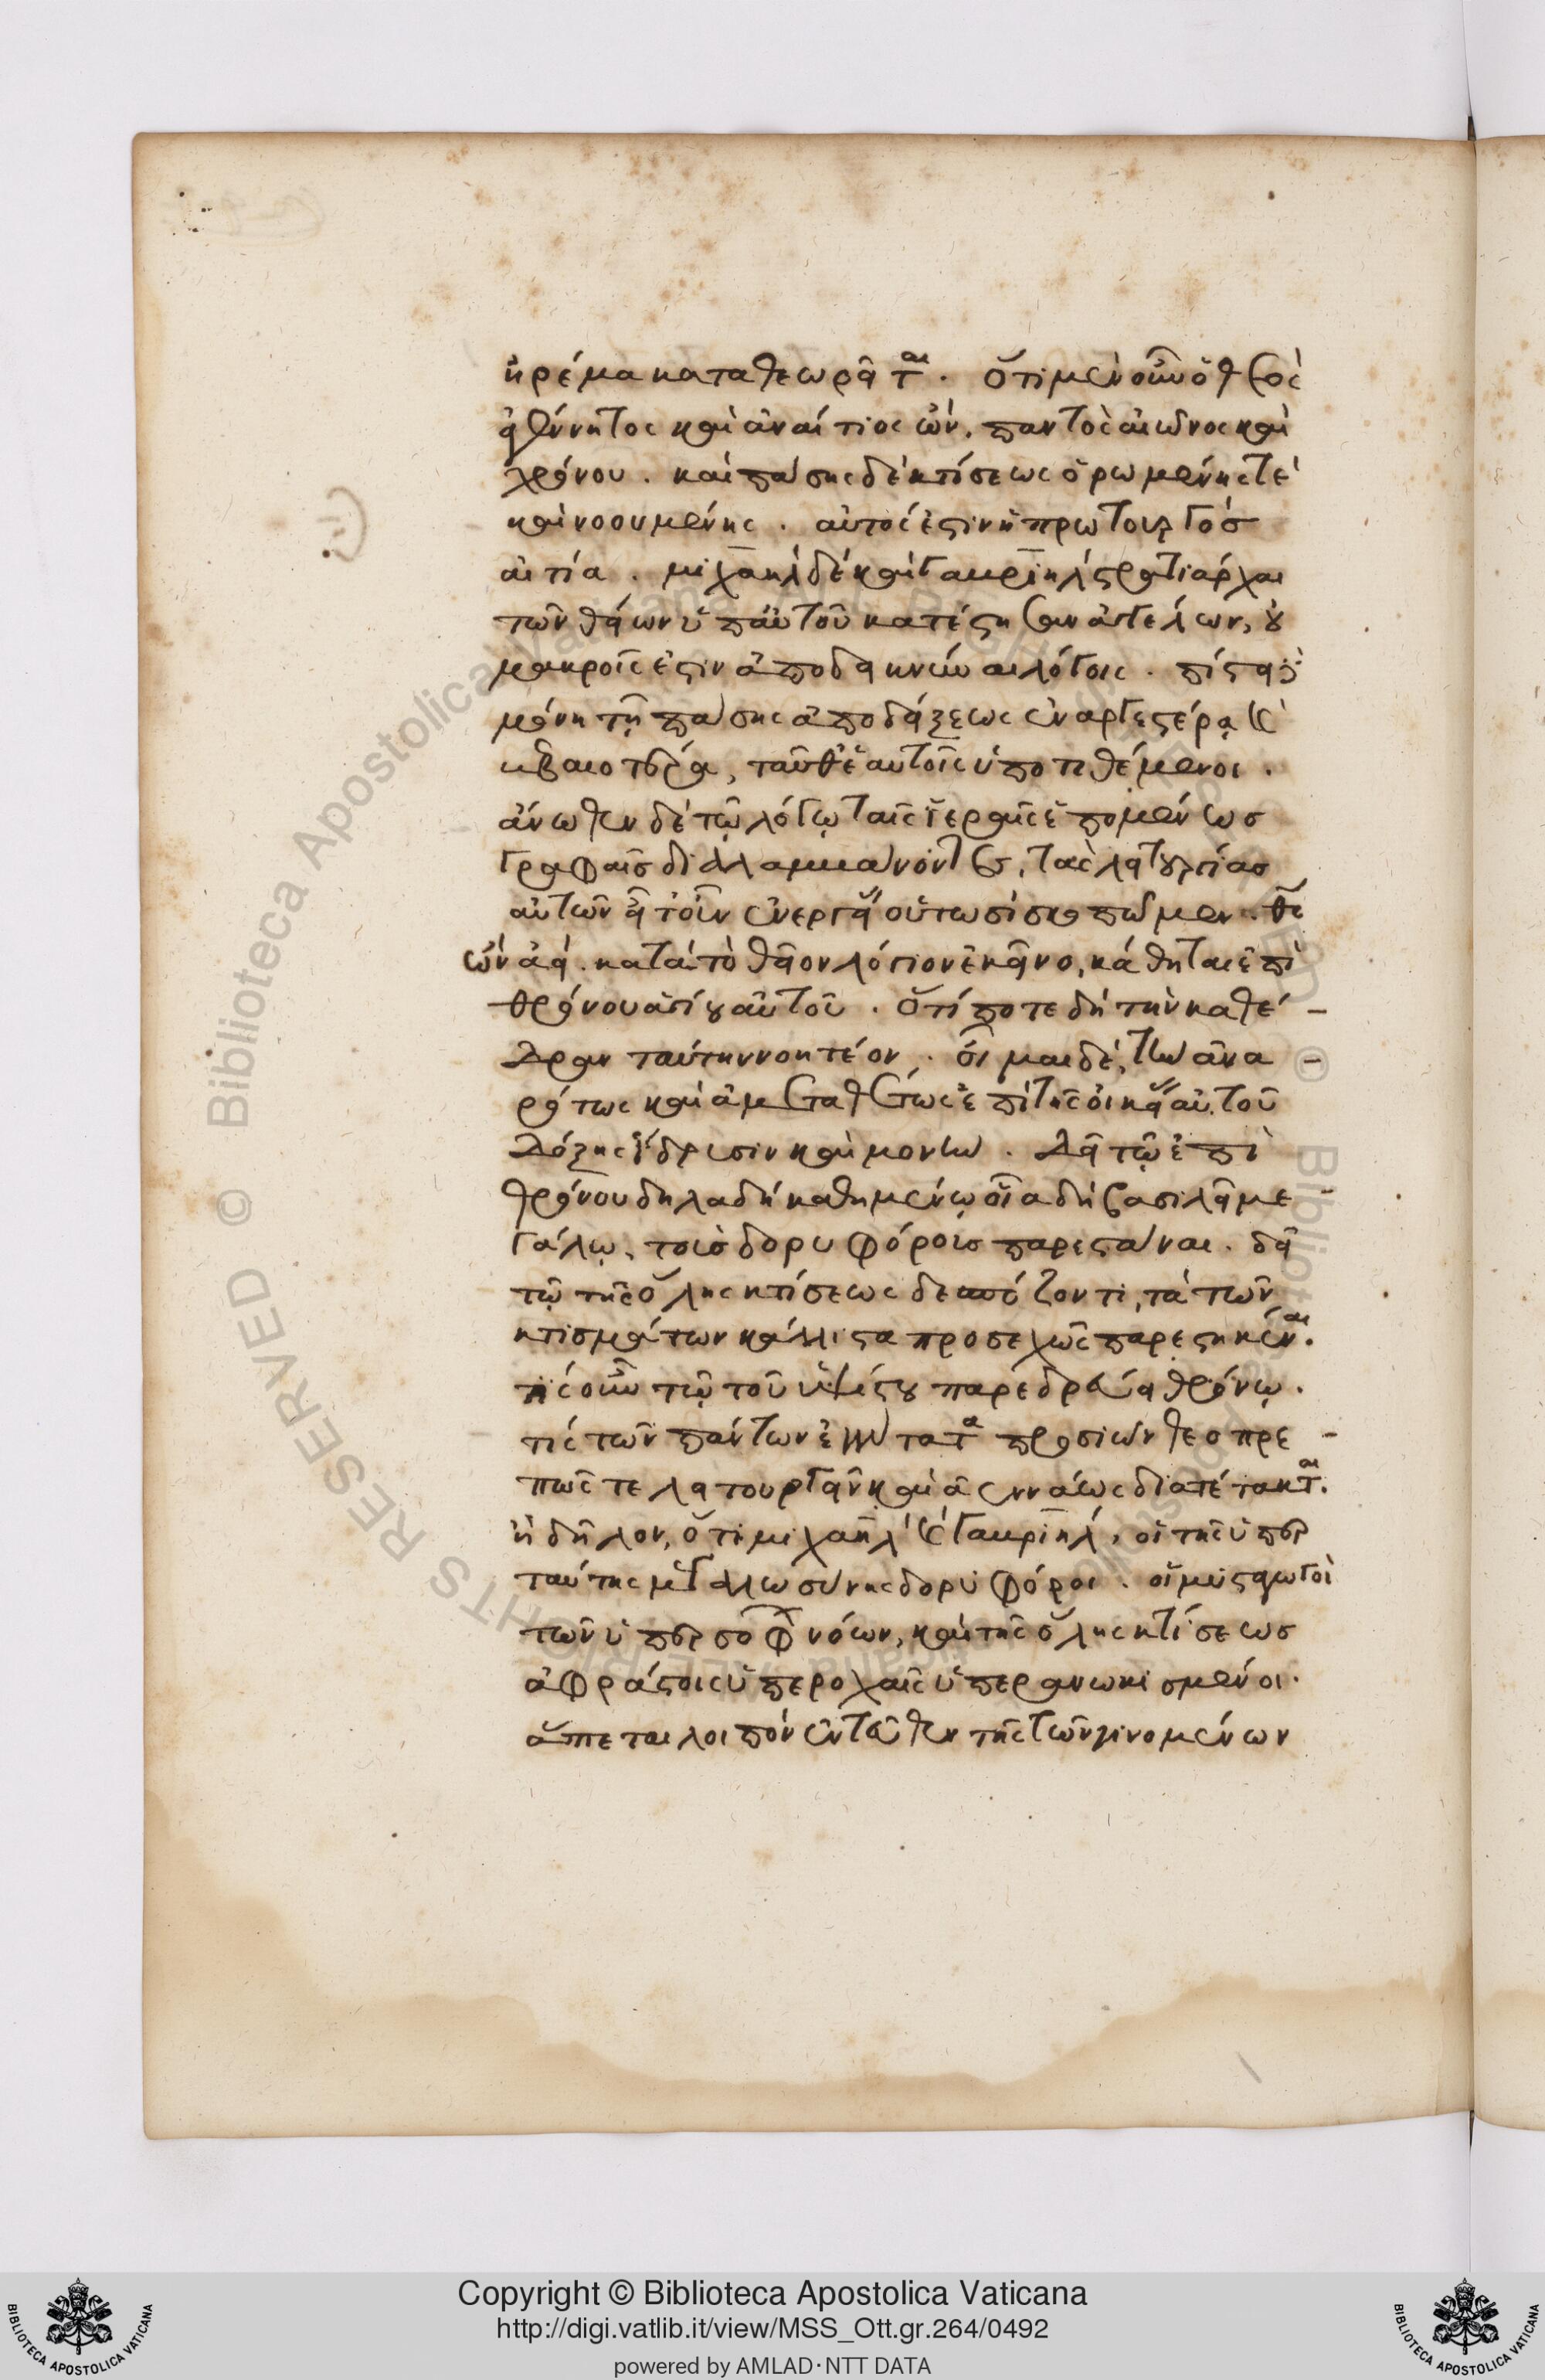 ἠρέμα καταθεωρεῖται. ὅτι μὲν οὖν ὁ θεὸς
ἀγέννητος καὶ ἀναίτιος ὢν, παντὸς αἰῶνος καὶ
χρόνου. καὶ πάσης δὲ κτίσεως ὁρωμένης τὲ
καὶ νοουμένης. αὐτός ἐστιν ἡ πρωτουργὸς
αἰτία. μιχαὴλ δὲ καὶ γαβριὴλ στρατιάρχαι
τῶν θείων ὑπ' αὐτοῦ κατέστησαν ἀγγέλων, οὐ
μακροῖς ἐστιν ἀποδεικνύναι λόγοις. πίστει δὲ
μόνη τῇ πάσης ἀποδείξεως ἐναργεστέρα καὶ
βεβαιοτέρα, ταῦθ' ἑαυτοῖς ὑποτιθέμενοι.
ἄνωθεν δὲ τῷ λόγῳ ταῖς ἱεραῖς ἑπομένως
γραφαῖς διαλαμβάνοντες, τὰς λειτουργίας
αὐτῶν εἴτουν ἐνεργείας οὑτωσὶ σκοπῶμεν. θεὸς
ὢν ἀεὶ. κατὰ τὸ θεῖον λόγιον ἐκεῖνο, κάθηται ἐπὶ
θρόνου ἁγίου αὐτοῦ. ὅτί ποτε δὴ τὴν καθέ-
δραν ταύτην νοητέον. οἶμαι δὲ, τὴν ἀνα-
ρότως καὶ ἀμεταθέτως ἐπὶ τῆς οἰκείας αὐτοῦ
δόξης ἵδρυσιν καὶ μονὴν. δεῖ τῷ ἐπὶ
θρόνου δηλαδὴ καθημένῳ οἷα δὴ βασιλεῖ με
γάλῳ, τοὺς δορυφόρους παρεστάναι. δεῖ
τῷ τῆς ὅλης κτίσεως δεσπόζοντι, τὰ τῶν
κτισμάτων κάλλιστα προσεχῶς παρεστηκέναι.
τίς οὖν τῷ τοῦ ὑψίστου παρεδρεύει θρόνῳ.
τίς τῶν πάντων ἐγγύτατα προσιὼν θεοπρε-
πῶς τε λειτουργεῖν καὶ ἀεννάως διατέτακται.
ἢ δῆλον, ὅτι μιχαὴλ καὶ γαβριὴλ, οἱ τῆς ὑπὲρ
ταύτης μεγαλωσύνης δορυφόροι. οἱ μυσταγωγοὶ
τῶν ὑπερσόφων νόων, καὶ τῆς ὅλης κτίσεως
ἀφράστοις ὑπεροχαῖς ὑπερανωκισμένοι.
ἅπτεται λοιπὸν ἐντεῦθεν τῆς τῶν γινομένων
Copyright © Biblioteca Apostolica Vaticana
http://digi.vatlib.it/view/MSS_Ott.gr.264/0492
powered by AMLAD·NTT DATA
BIBLIOTECA APOSTOLICA VATICANA
BIBLIOTECA APOSTOLICA VATICANA